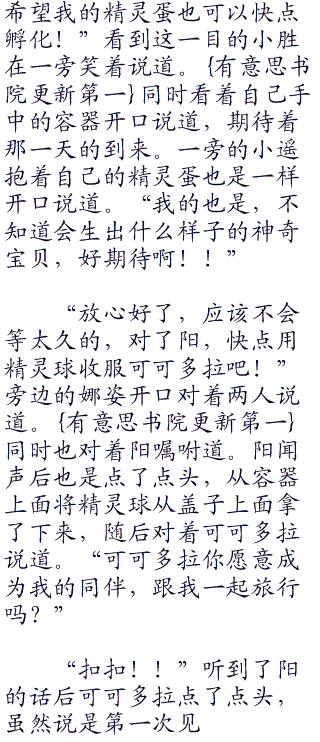 希望我的精灵蛋也可以快点
孵化！”看到这一目的小胜
在一旁笑着说道。{有意思书
院更新第一}同时看着自己手
中的容器开口说道，期待着
那一天的到来。一旁的小遥
抱着自己的精灵蛋也是一样
开口说道。“我的也是，不
知道会生出什么样子的神奇
宝贝，好期待啊！！”
“放心好了，应该不会
等太久的，对了阳，快点用
精灵球收服可可多拉吧！”
旁边的娜姿开口对着两人说
道。{有意思书院更新第一}
同时也对着阳嘱咐道。阳闻
声后也是点了点头，从容器
上面将精灵球从盖子上面拿
了下来，随后对着可可多拉
说道。“可可多拉你愿意成
为我的同伴，跟我一起旅行
吗？”
“扣扣！！”听到了阳
的话后可可多拉点了点头，
虽然说是第一次见